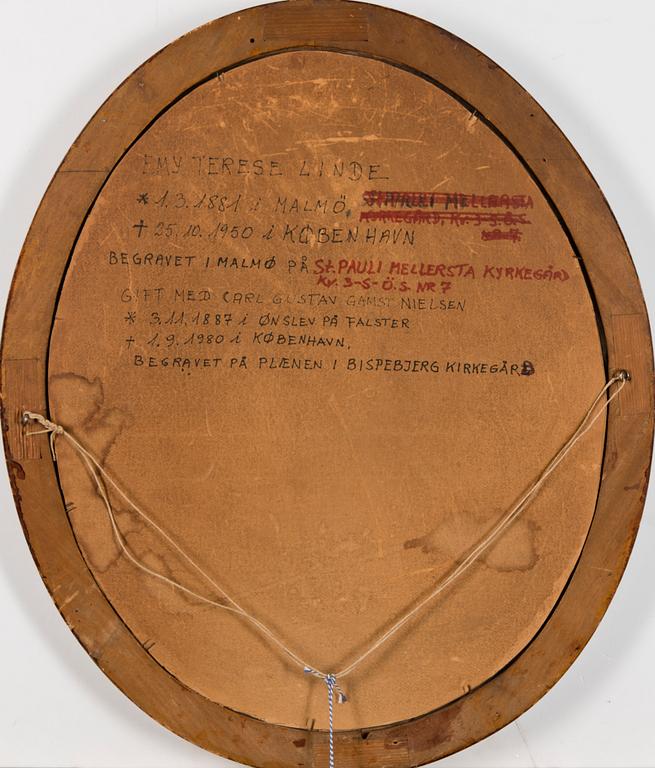 EMY TERESE LINDE
* 1.3.1881 i MALMÖ, St. PAULI MELLERSTA
KYRKEGÅRD, Kv. 3-S-Ö.S.
NR 7
† 25.10.1950 i KØBENHAVN
BEGRAVET I MALMØ PÅ St. PAULI MELLERSTA KYRKEGÅRD
Kv. 3-S-Ö.S. NR 7
GIFT MED CARL GUSTAV GAMST NIELSEN
* 3.11.1887 i ØNSLEV PÅ FALSTER
† 1.9.1980 i KØBENHAVN.
BEGRAVET PÅ PLÆNEN I BISPEBJERG KIRKEGÅRD